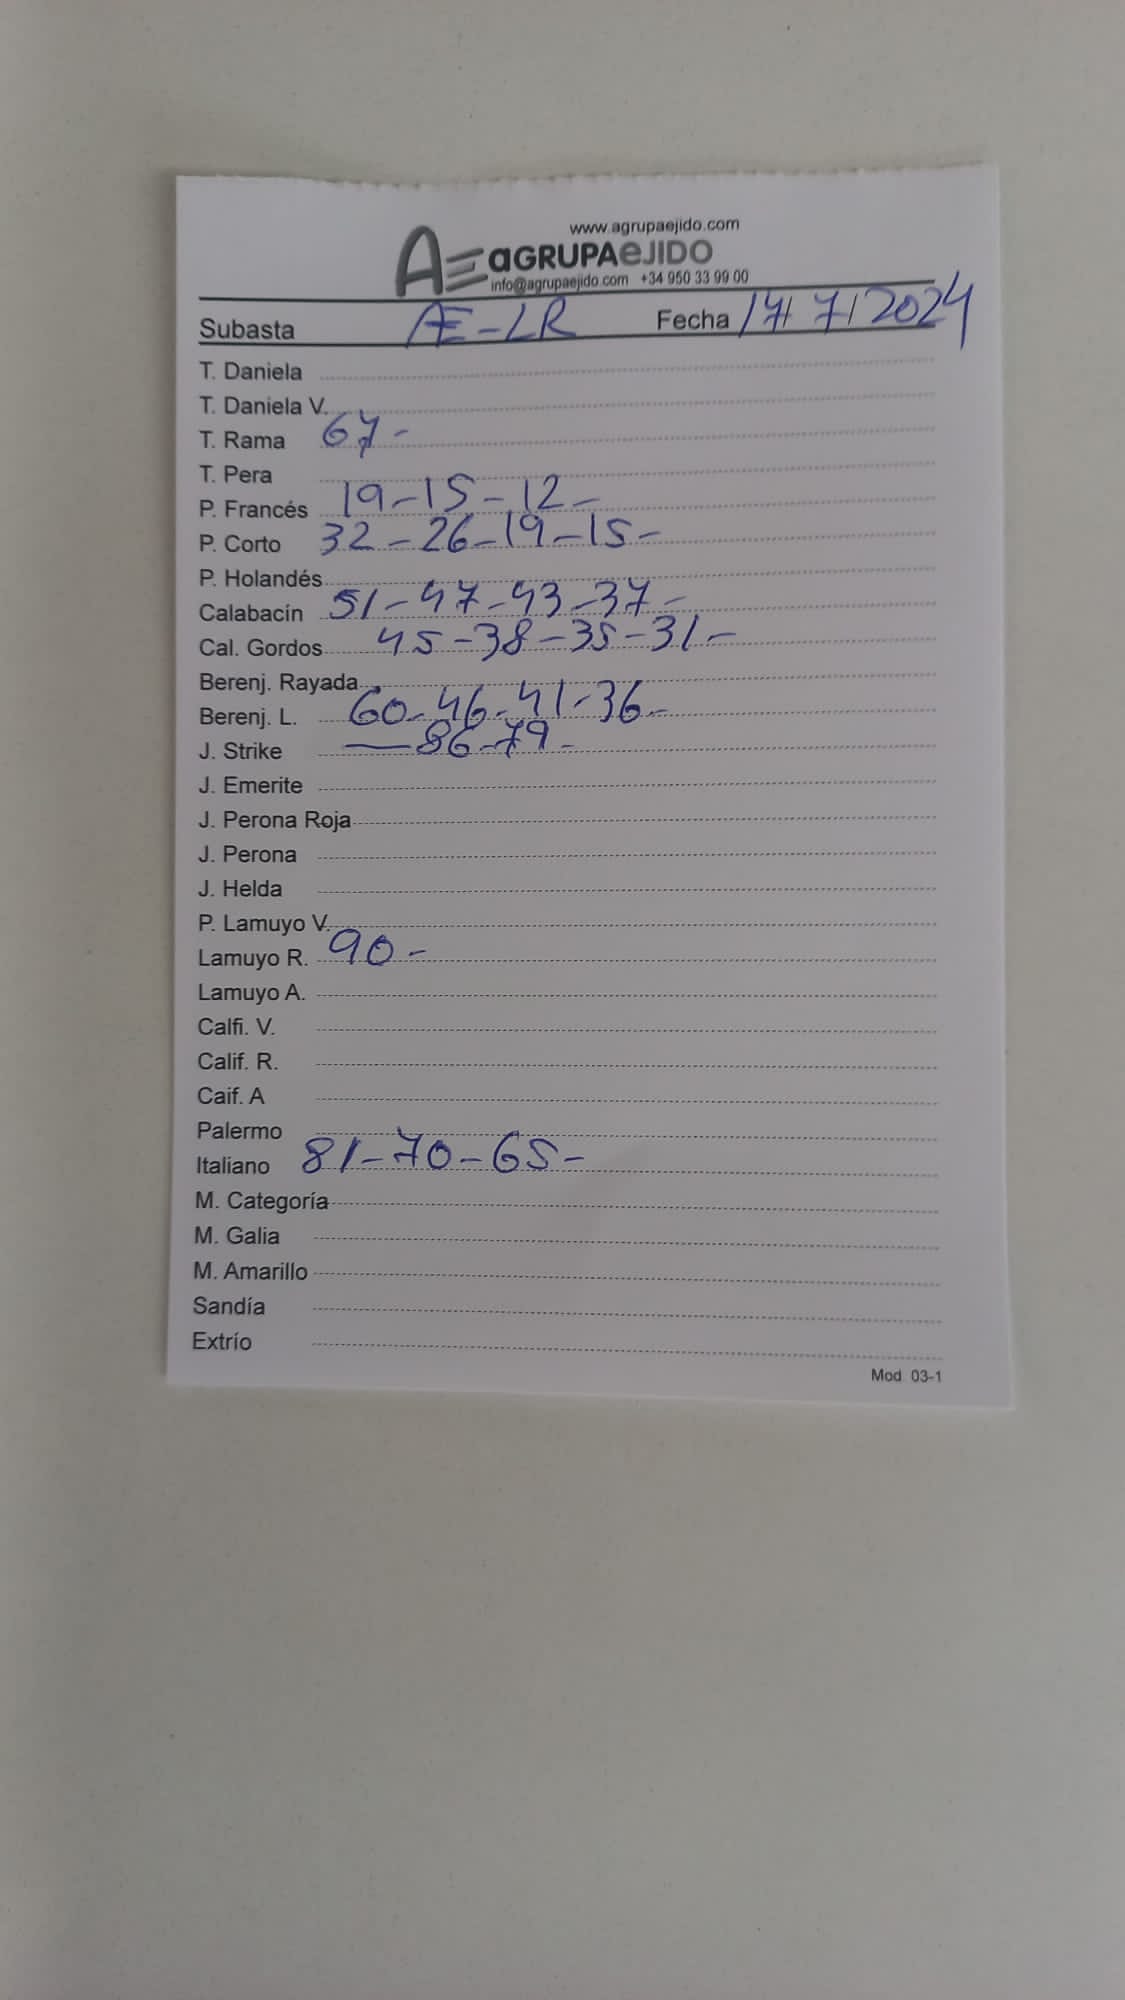 www.agrupaejido.com
AE aGRUPAeJIDO
info@agrupaejido.com +34 950 33 99 00
Subasta AE-LR Fecha 17/ 7/ 2024
T. Daniela
T. Daniela V.
T. Rama 67-
T. Pera
P. Francés 19-15-12-
P. Corto 32-26-19-15-
P. Holandés
Calabacín 51-47-43-37-
Cal. Gordos 45-38-35-31-
Berenj. Rayada
Berenj. L. 60-46-41-36-
J. Strike —86-79-
J. Emerite
J. Perona Roja
J. Perona
J. Helda
P. Lamuyo V.
Lamuyo R. 90-
Lamuyo A.
Calfi. V.
Calif. R.
Caif. A
Palermo
Italiano 81-70-65-
M. Categoría
M. Galia
M. Amarillo
Sandía
Extrío
Mod. 03-1